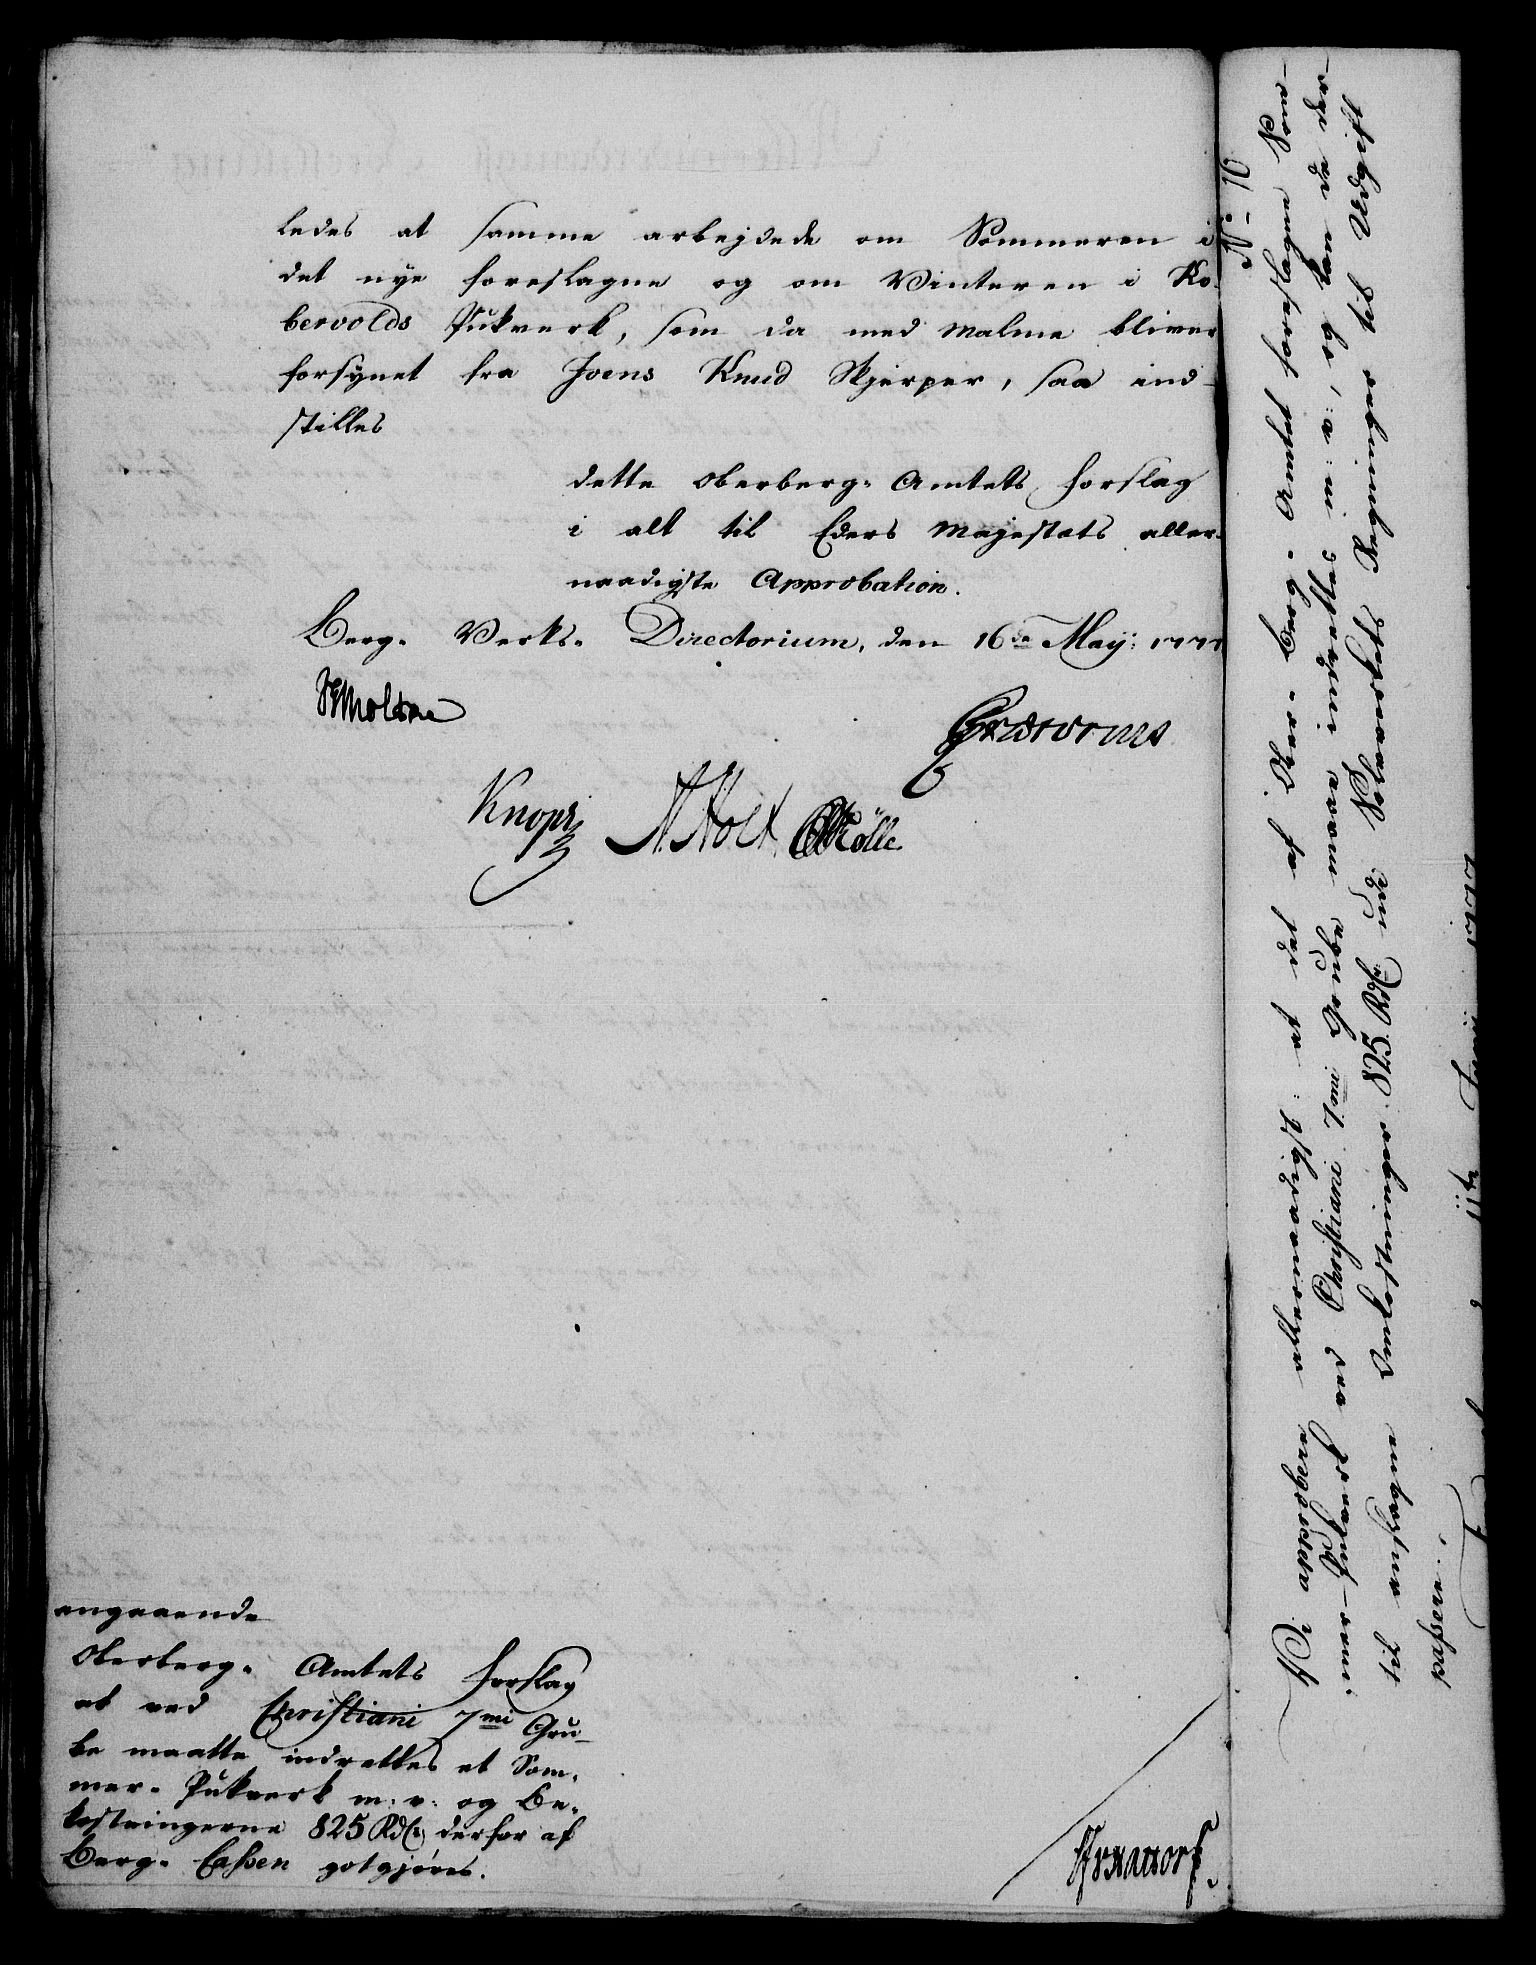 ledes at samme arbejdede om Sommeren i
det nye foreslagne og om Vinteren i Ko-
bervolds Pukverk, som da med Malme bliver
forsynet fra Joens Knud Skjerper, saa ind-
stilles
dette Oberberg-Amtets Forslag
i alt til Eders Majestæts aller-
naadigste Approbation.
Berg-Verks-Directorium, den 16de May: 1777
Knopf
N. Holt
angaaende
Oberberg-Amtets Forslag
at ved Christiani 7mi Gru-
be maatte indrettes et Som-
mer-Pukverk m: v: og Be-
kostningerne 825 Rdr derfor af
Berg-Cassen gotgjøres.
No 10
Vi approbere allernaadigst: at det af Ober-Berg-Amtet foreslagne Som-
mer-Pukverk ved Christiani 7mi Grube maae indrettes m: v:, og kan de der-
til anslagne Omkostninger 825 Rdr udi Sølverkets Regninger til Udgift
passere.
11te Junii 1777